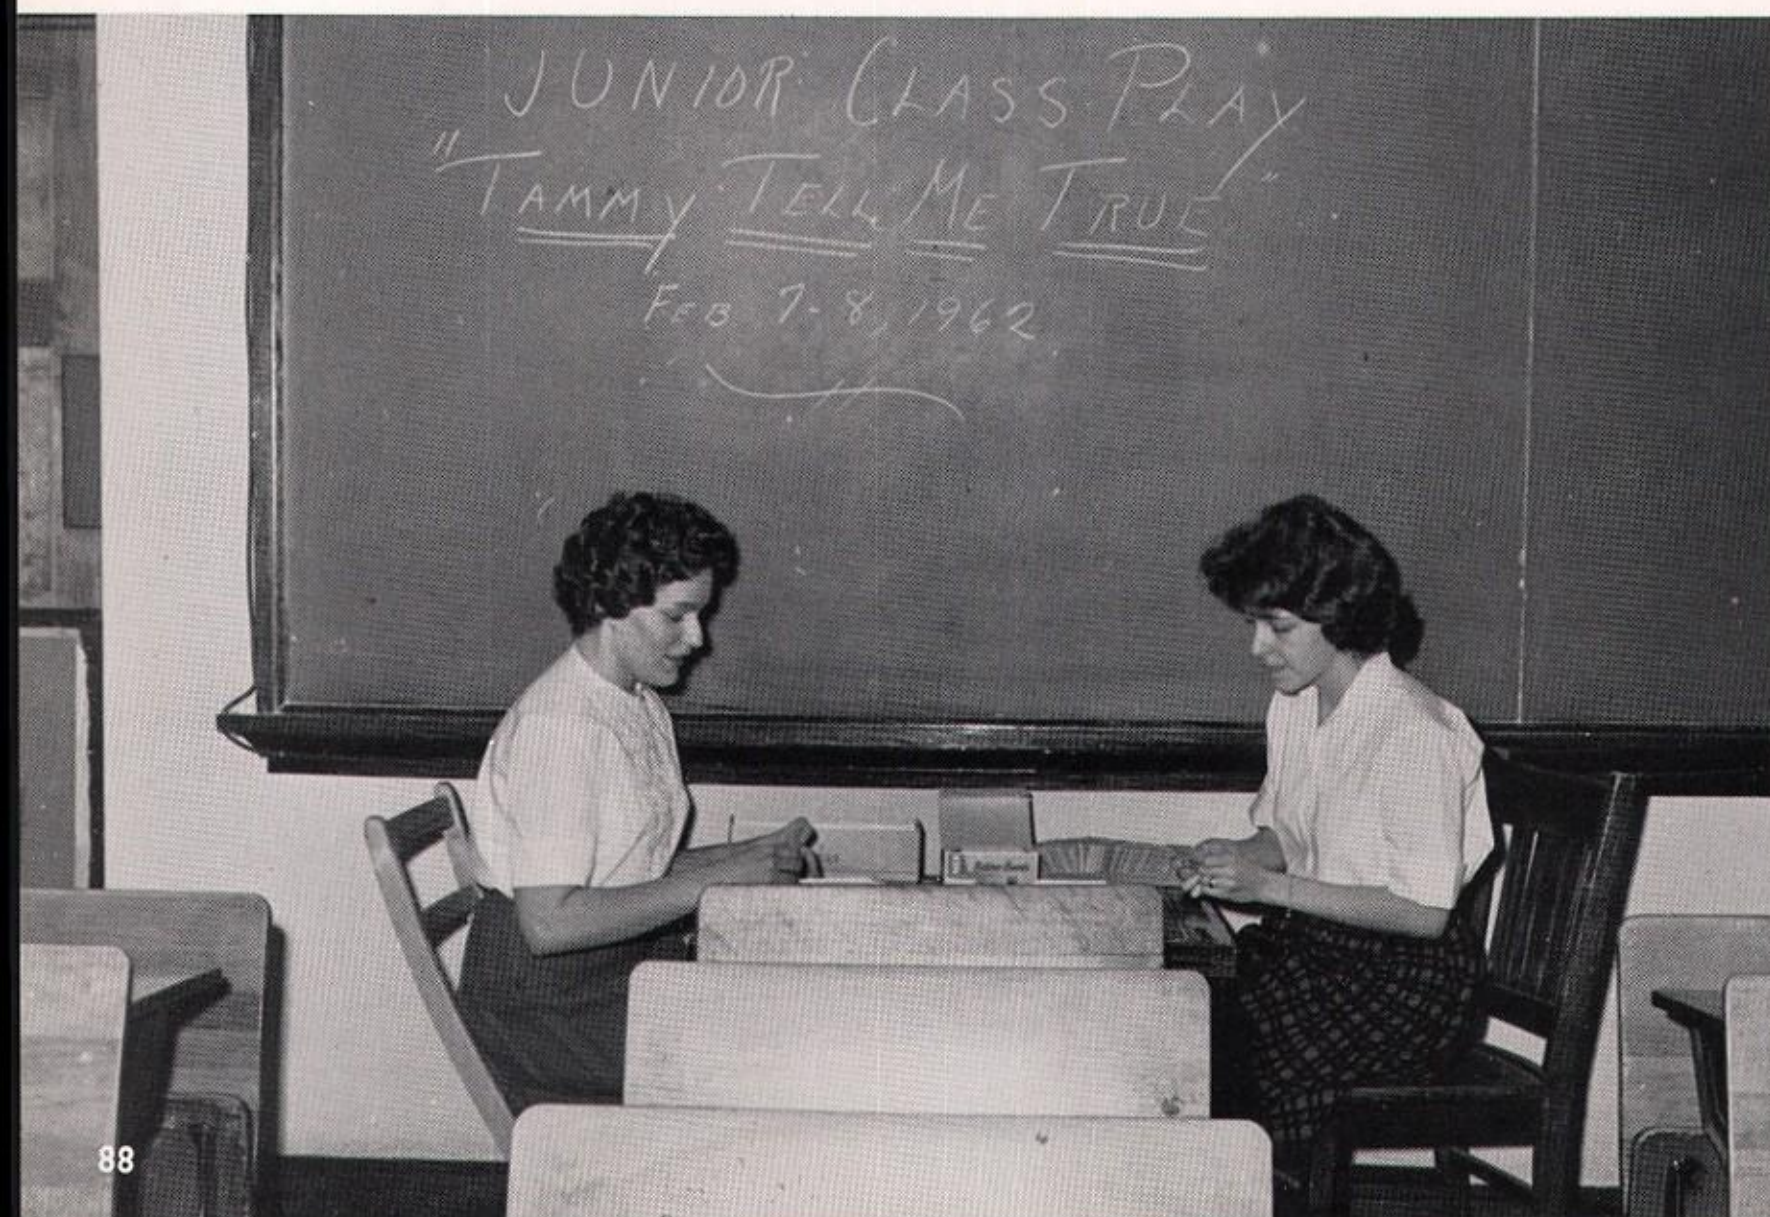 JUNIOR CLASS PLAY
"TAMMY TELL ME TRUE"
FEB 7-8, 1962
88